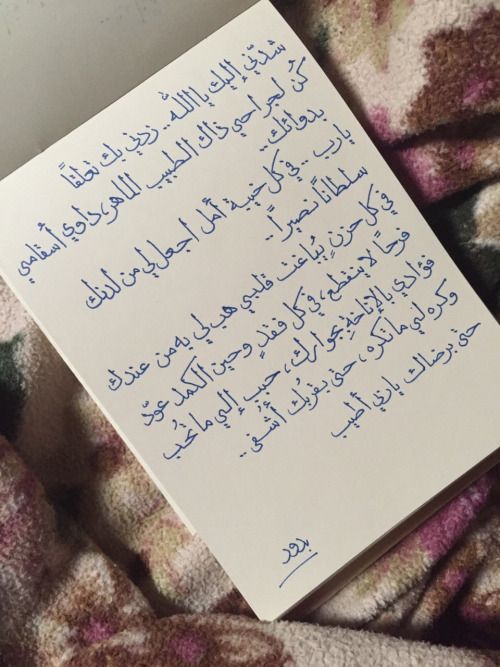 شدّني إليك يا الله .. زدني بك تعلقاً
كُن لجراحي ذاك الطبيب الماهر، داوي أسقامي
بدوائك ..
يارب .. في كل خيبة أمل اجعل لي من لدنك
سلطانًا نصيراً ..
في كل حزنٍ يُباغت قلبي هب لي يه من عندك
فرحًا لا ينقطع، في كل فقدٍ وحين الكمد عوّد
فؤادي بالإناخةِ بجوارك، حبب إلي ما تُحب
وكره لي ما تكره، حتى بقربك أُشفى ..
حتى برضاك ياربي أطيب
بدور